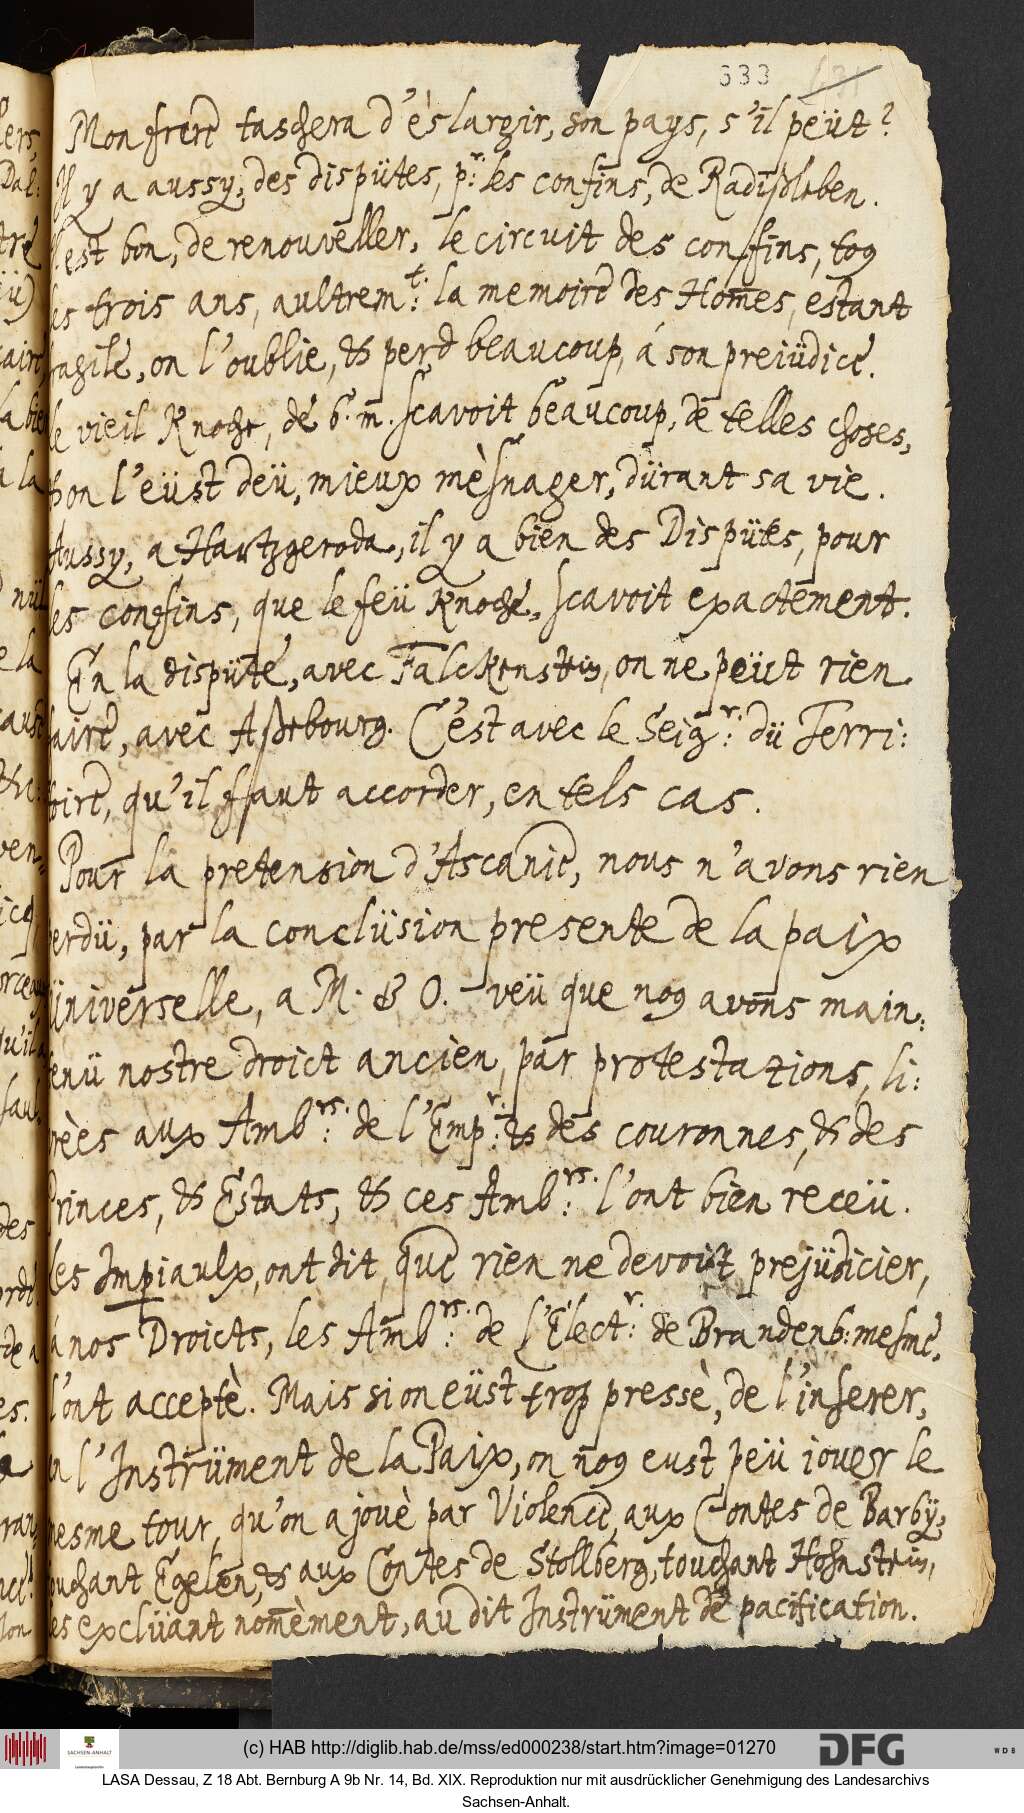 333
Mon frere taschera d'èslargir, son pays, s'il peüt?
Il y a aussy, des dispütes, p.r les confins, de Radißleben.
Il est bon, de renouveller, le circuit des confins, to9
les trois ans, aultrem.t la memoire des Hom̄es, estant
fragile, on l'oublie, & perd beaucoup, á son preiüdice.
le vieil Knoche, de b. m. sçavoit beaucoup, de telles choses,
& on l'eüst deü, mieux mèsnager, dürant sa vie.
Aussy, a Hartzgeroda, il y a bien des Dispütes, pour
les confins, que le feü Knoche, sçavoit exactement.
En la dispüte, avec Falckenstein, on ne peüt rien
faire, avec Aßebourg. C'est avec le Seig.r dü Terri:
toire, qu'il faut accorder, en tels cas.
Pour la pretension d'Ascanie, nous n'avons rien
perdü, par la conclüsion presente de la paix
Üniverselle, a M. & O. veü que no9 avons main:
tenü nostre droict ancien, par protestations, li:
vrèes aux Amb.rs de l'Emp.r & des couronnes, & des
Princes, & Estats, & ces Amb.rs l'ont bien receü.
Les Imp̱iaulx, ont dit, que rien ne devoit prejüdicier,
á nos Droicts, les Amb.rs de l'Elect.r de Brandenb: mesme,
l'ont acceptè. Mais si on eüst trop pressè, de l'inserer,
en l'Instrüment de la Paix, on no9 eust peü iouer le
mesme tour, qu'on a jouè par Violence, aux Contes de Barbÿ,
touchant Egelen, & aux Contes de Stollberg, touchant Hohnstein,
les exclüant nom̄èment, au dit Instrüment de pacification.
(c) HAB http://diglib.hab.de/mss/ed000238/start.htm?image=01270
SACHSEN-ANHALT
DFG
WDB
LASA Dessau, Z 18 Abt. Bernburg A 9b Nr. 14, Bd. XIX. Reproduktion nur mit ausdrücklicher Genehmigung des Landesarchivs
Sachsen-Anhalt.